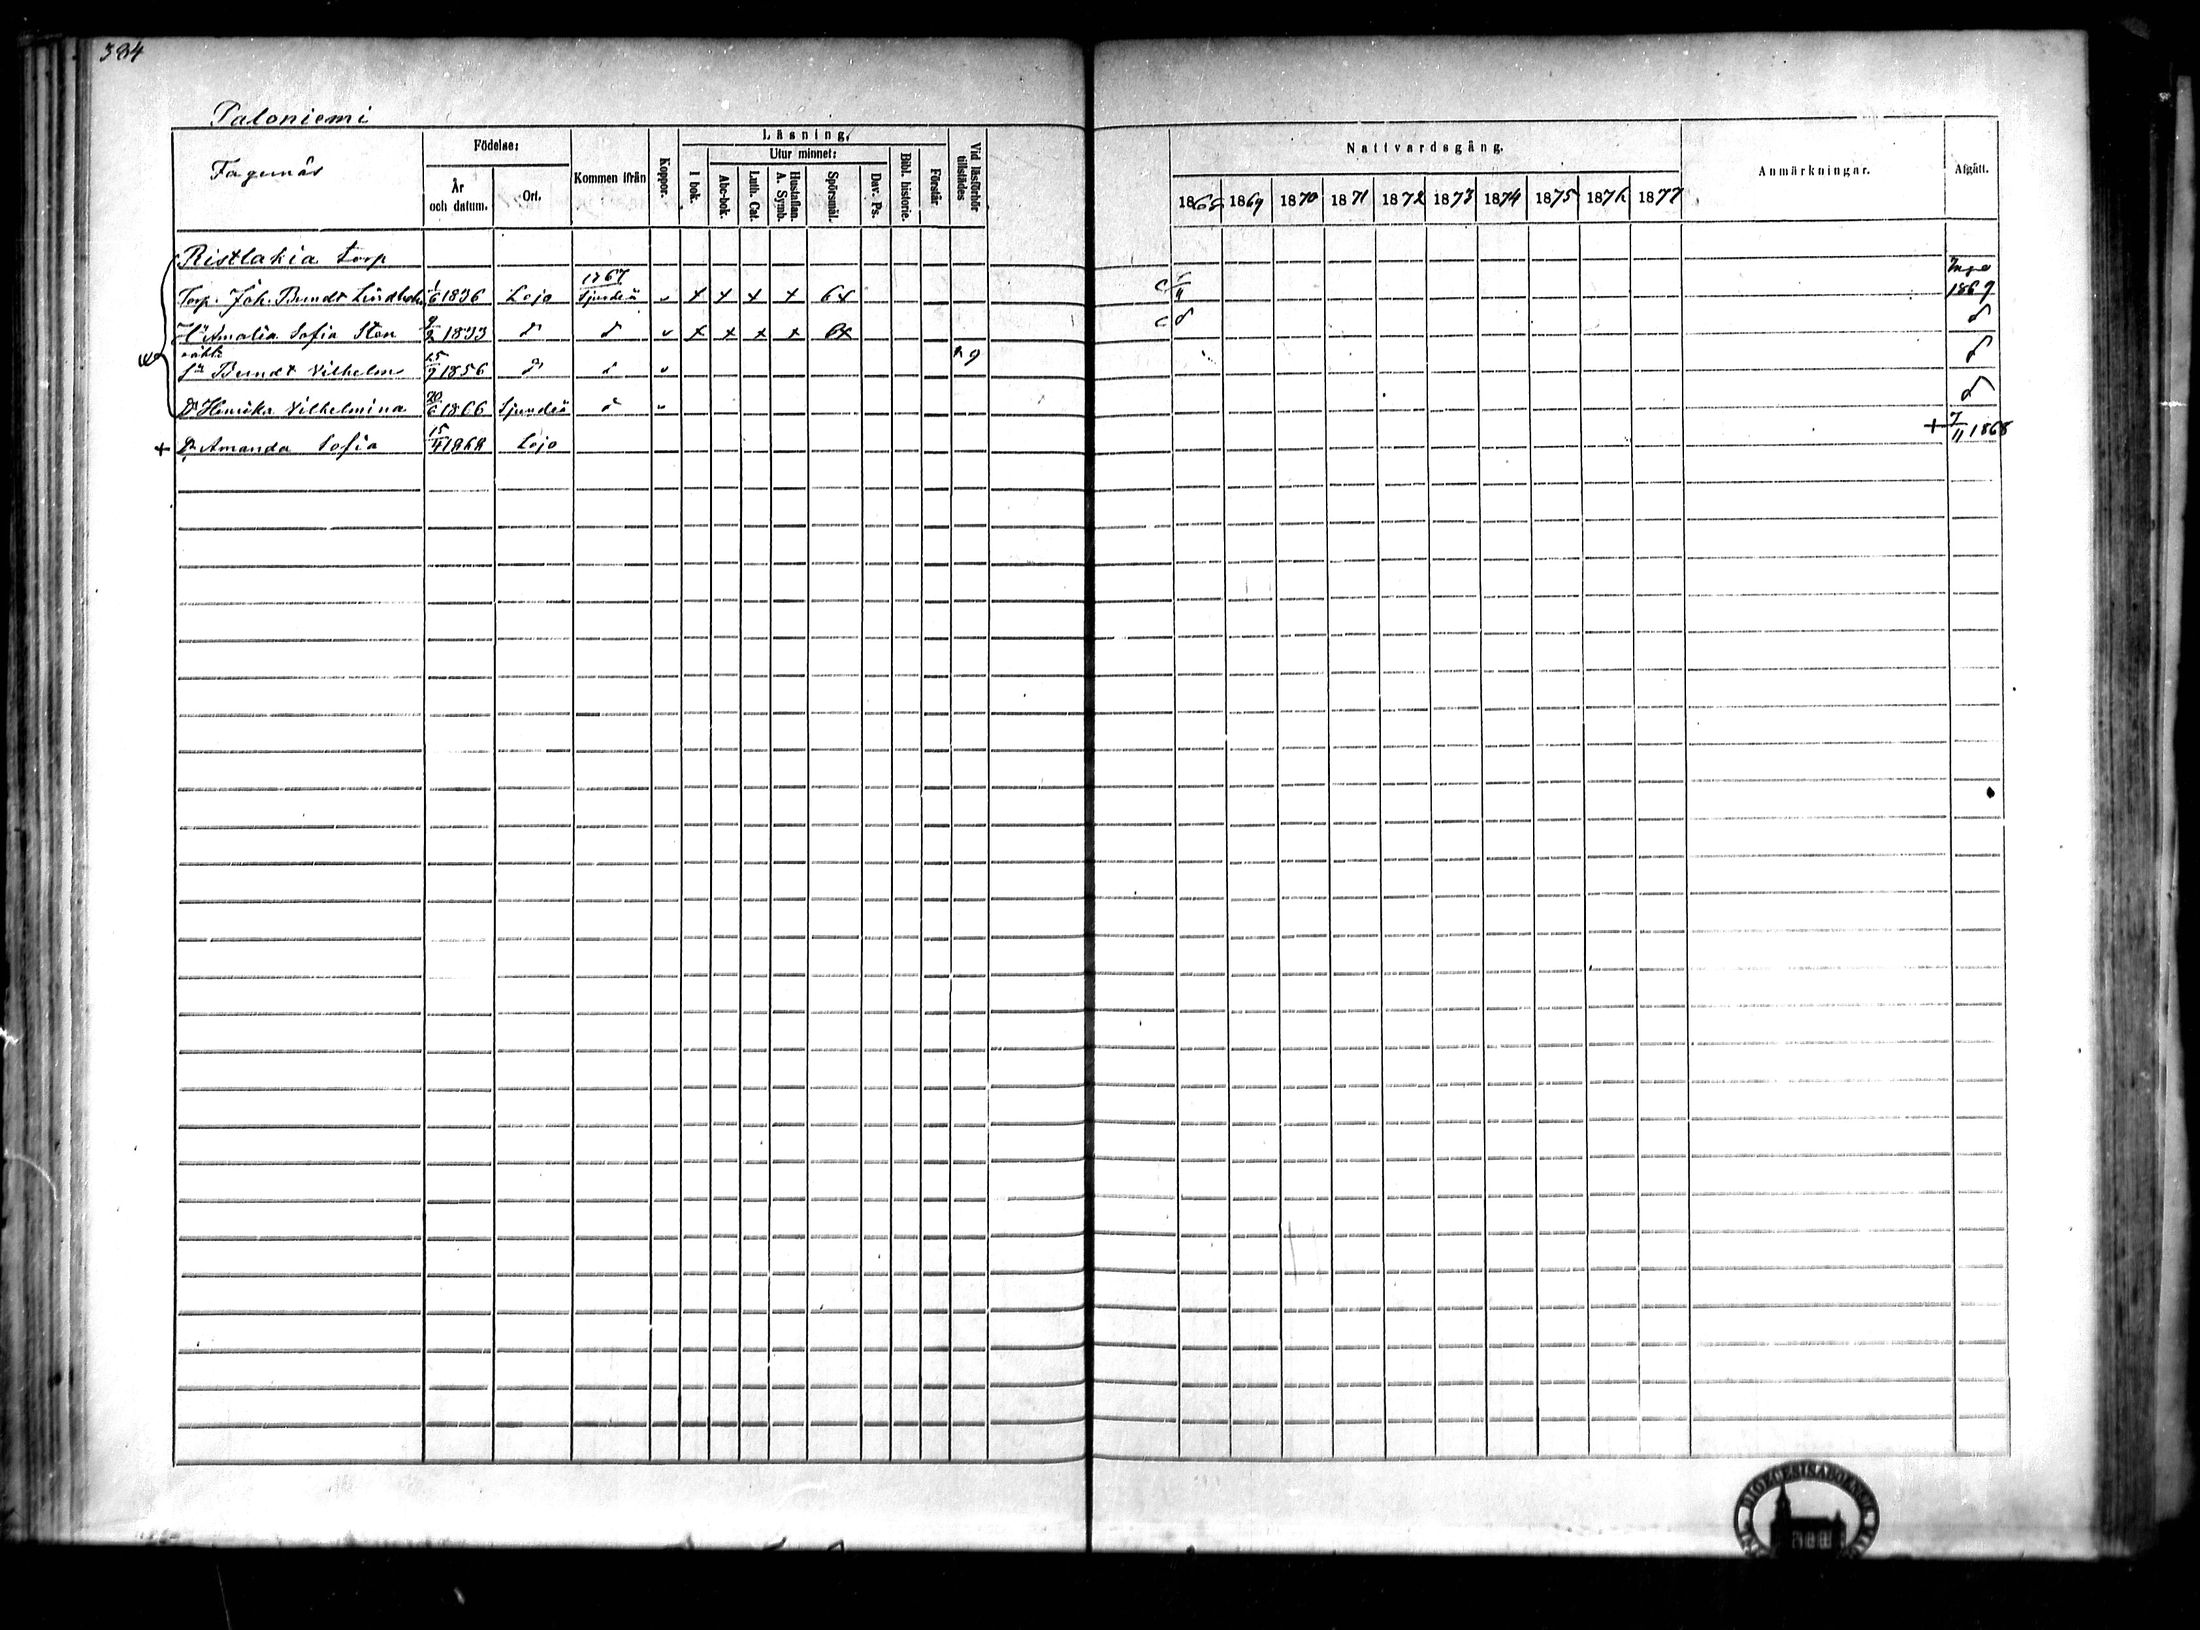 384
Paloniemi
Fagernäs
Födelse:
År och datum.
Ort.
Kommen ifrån
Koppor.
Läsning.
I bok.
Utur minnet:
Abc-bok.
Luth. Cat.
Hustaflan. A. Symb.
Spörsmål.
Dav. Ps.
Bibl. historie.
Förstår.
Vid läsförhör tillstädes
Nattvardsgång.
1868 1869 1870 1871 1872 1873 1874 1875 1876 1877
Anmärkningar.
Afgått.
Ristlakia torp
Torp. Joh. Berndt Lindholm 1/6 1836 Lojo 1767 Sjundeå v + + + + 6x 1869
Hu Amalia Sofia Sten 9/2 1833 d d v + + + + 6x d d
Sn Berndt Vilhelm 25/9 1856 d d v 29 d
Dr Henrika Vilhelmina 20/6 1866 Sjundeå d v d
+ Dr Amanda Sofia 15/4 1868 Lojo + 7/11 1868
DIOECESIS ABOENSIS